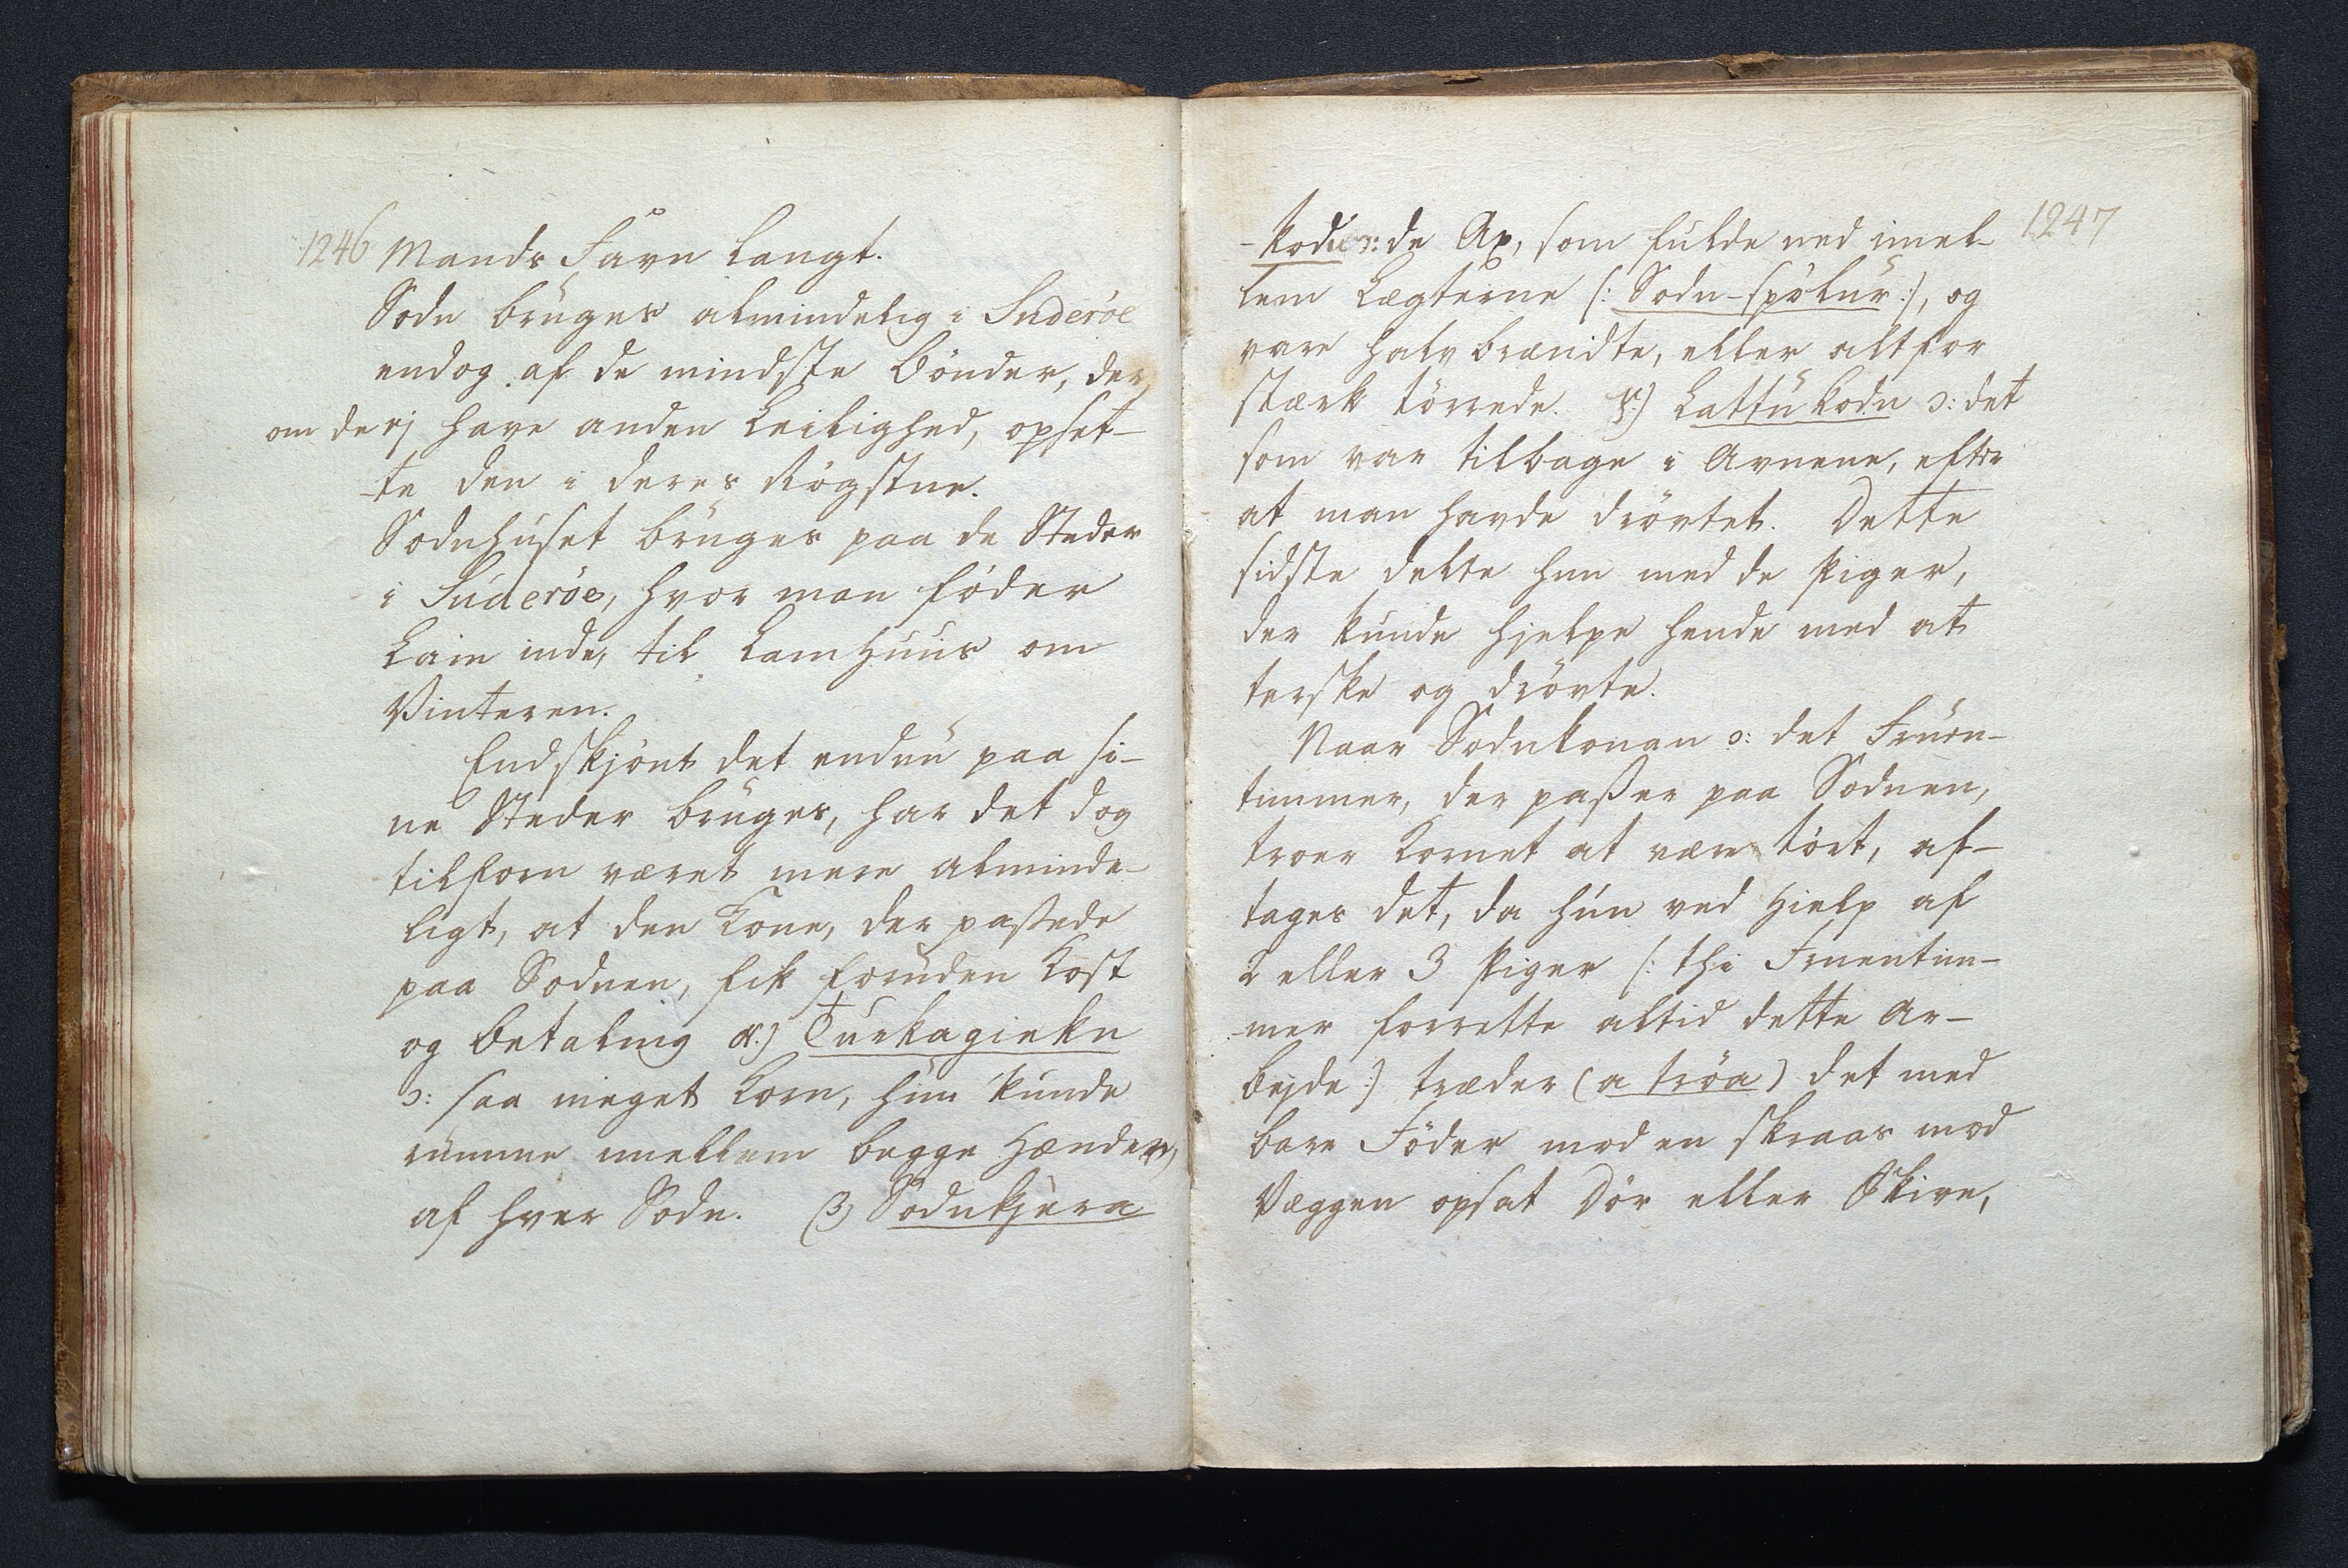 1246 Mands Favn langt.
Sodn bruges almindelig i Suderöe
endog af de mindste Bönder, der,
om de ej have anden Leilighed, opset-
te den i deres Rögstue.
Sodnhuset bruges paa de Steder
i Suderöe, hvor man föder
Lam inde, til Lamhuus om
Vinteren.
Endskjönt det endnu paa si-
ne Steder bruges, har det dog
tilforn været mere alminde-
ligt, at den Kone, der passede
paa Sodnen, fik foruden Kost
og Betaling α.) Turkagiekn
ɔ: saa meget Korn, hun kunde
rumme imellem begge Hænder,
af hver Sodn. β) Sodnkjera
1247
-kodn ɔ: de Ax, som fulde ned imel-
lem Lægterne (: Sodn-spölur :), og
vare halv brændte, eller altfor
stærk törrede. γ.) Lattukodn ɔ: det
som var tilbage i Avnene, efter
at man havde drövtet. Dette
sidste delte hun med de Piger,
der kunde hjelpe hende med at
terske og drövte.
Naar Sodnkonan ɔ: det Fruen-
timmer, der passer paa Sodnen,
troer Kornet at være tört, af-
tages det, da hun ved Hielp af
2 eller 3 Piger (: thi Fruentim-
mer forrette altid dette Ar-
bejde :) træder (a tröa) det med
bare Föder mod en skraas mod
Væggen opsat Dör eller Skive,